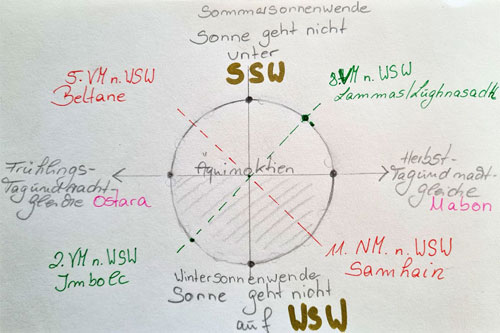 Sommersonnenwende
Sonne geht nicht
unter
SSW
5. VM n. WSW
Beltane
8. VM n. WSW
Lammas/Lughnasadh
Frühlings-
Tagundnacht-
gleiche Ostara
Äquinoktien
Herbst-
Tagundnacht-
gleiche
Mabon
2. VM n. WSW
Imbolc
11. NM. n. WSW
Samhain
Wintersonnenwende
Sonne geht nicht
auf WSW